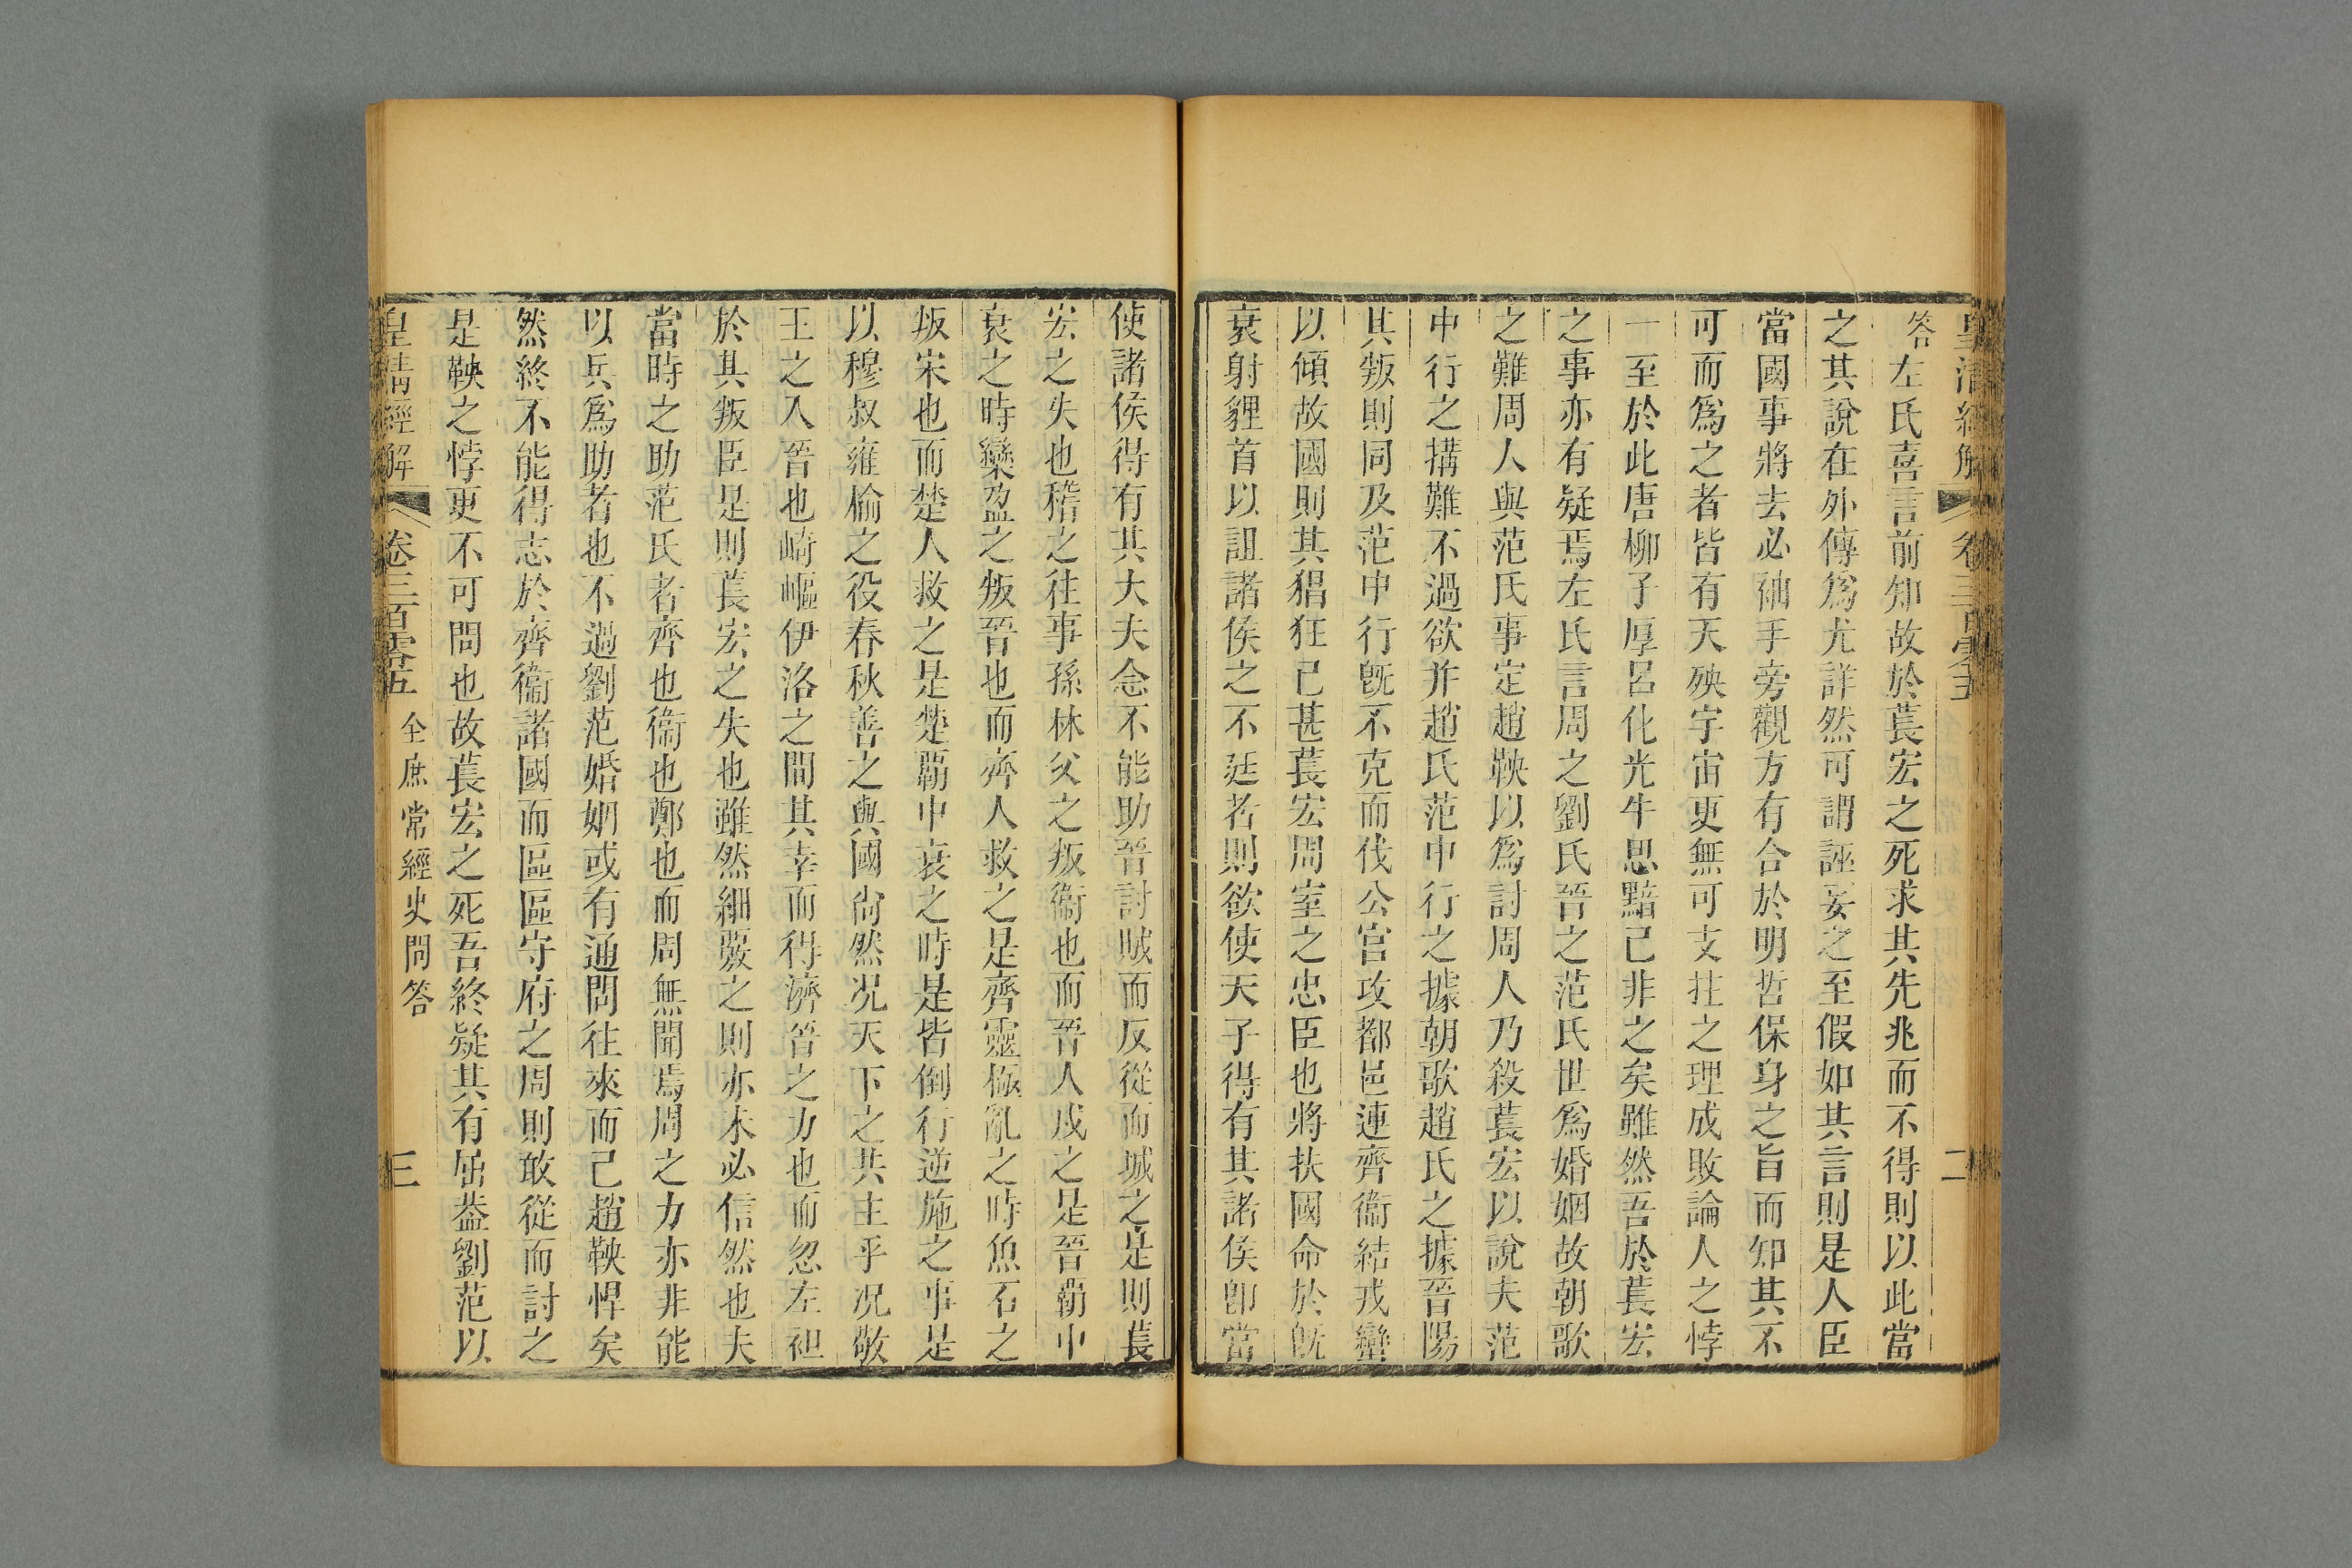 皇清經解 卷三百零五 二
答左氏喜言前知故於萇宏之死求其先兆而不得則以此當
之其說在外傳爲尤詳然可謂誣妄之至假如其言則是人臣
當國事將去必袖手旁觀方有合於明哲保身之旨而知其不
可而爲之者皆有天殃宇宙更無可支拄之理成敗論人之悖
一至於此唐柳子厚呂化光牛思黯已非之矣雖然吾於萇宏
之事亦有疑焉左氏言周之劉氏晉之范氏世爲婚姻故朝歌
之難周人與范氏事定趙鞅以爲討周人乃殺萇宏以說夫范
中行之搆難不過欲并趙氏范中行之據朝歌趙氏之據晉陽
其叛則同及范中行旣不克而伐公宮攻都邑連齊衞結戎蠻
以傾故國則其猖狂已甚萇宏周室之忠臣也將扶國命於旣
衰射貍首以詛諸侯之不廷者則欲使天子得有其諸侯卽當
使諸侯得有其大夫念不能助晉討賊而反從而城之是則萇
宏之失也稽之往事孫林父之叛衞也而晉人戍之是晉霸中
衰之時欒盈之叛晉也而齊人救之是齊靈極亂之時魚石之
叛宋也而楚人救之是楚霸中衰之時是皆倒行逆施之事是
以穆叔雍楡之役春秋善之與國尙然况天下之共主乎况敬
王之入晉也崎嶇伊洛之間其幸而得濟晉之力也而忽左袒
於其叛臣是則萇宏之失也雖然細覈之則亦未必信然也夫
當時之助范氏者齊也衞也鄭也而周無聞焉周之力亦非能
以兵爲助者也不過劉范婚姻或有通問往來而已趙鞅悍矣
然終不能得志於齊衞諸國而區區守府之周則敢從而討之
是鞅之悖更不可問也故萇宏之死吾終疑其有屈葢劉范以
皇清經解 卷三百零五 全庶常經史問答 三